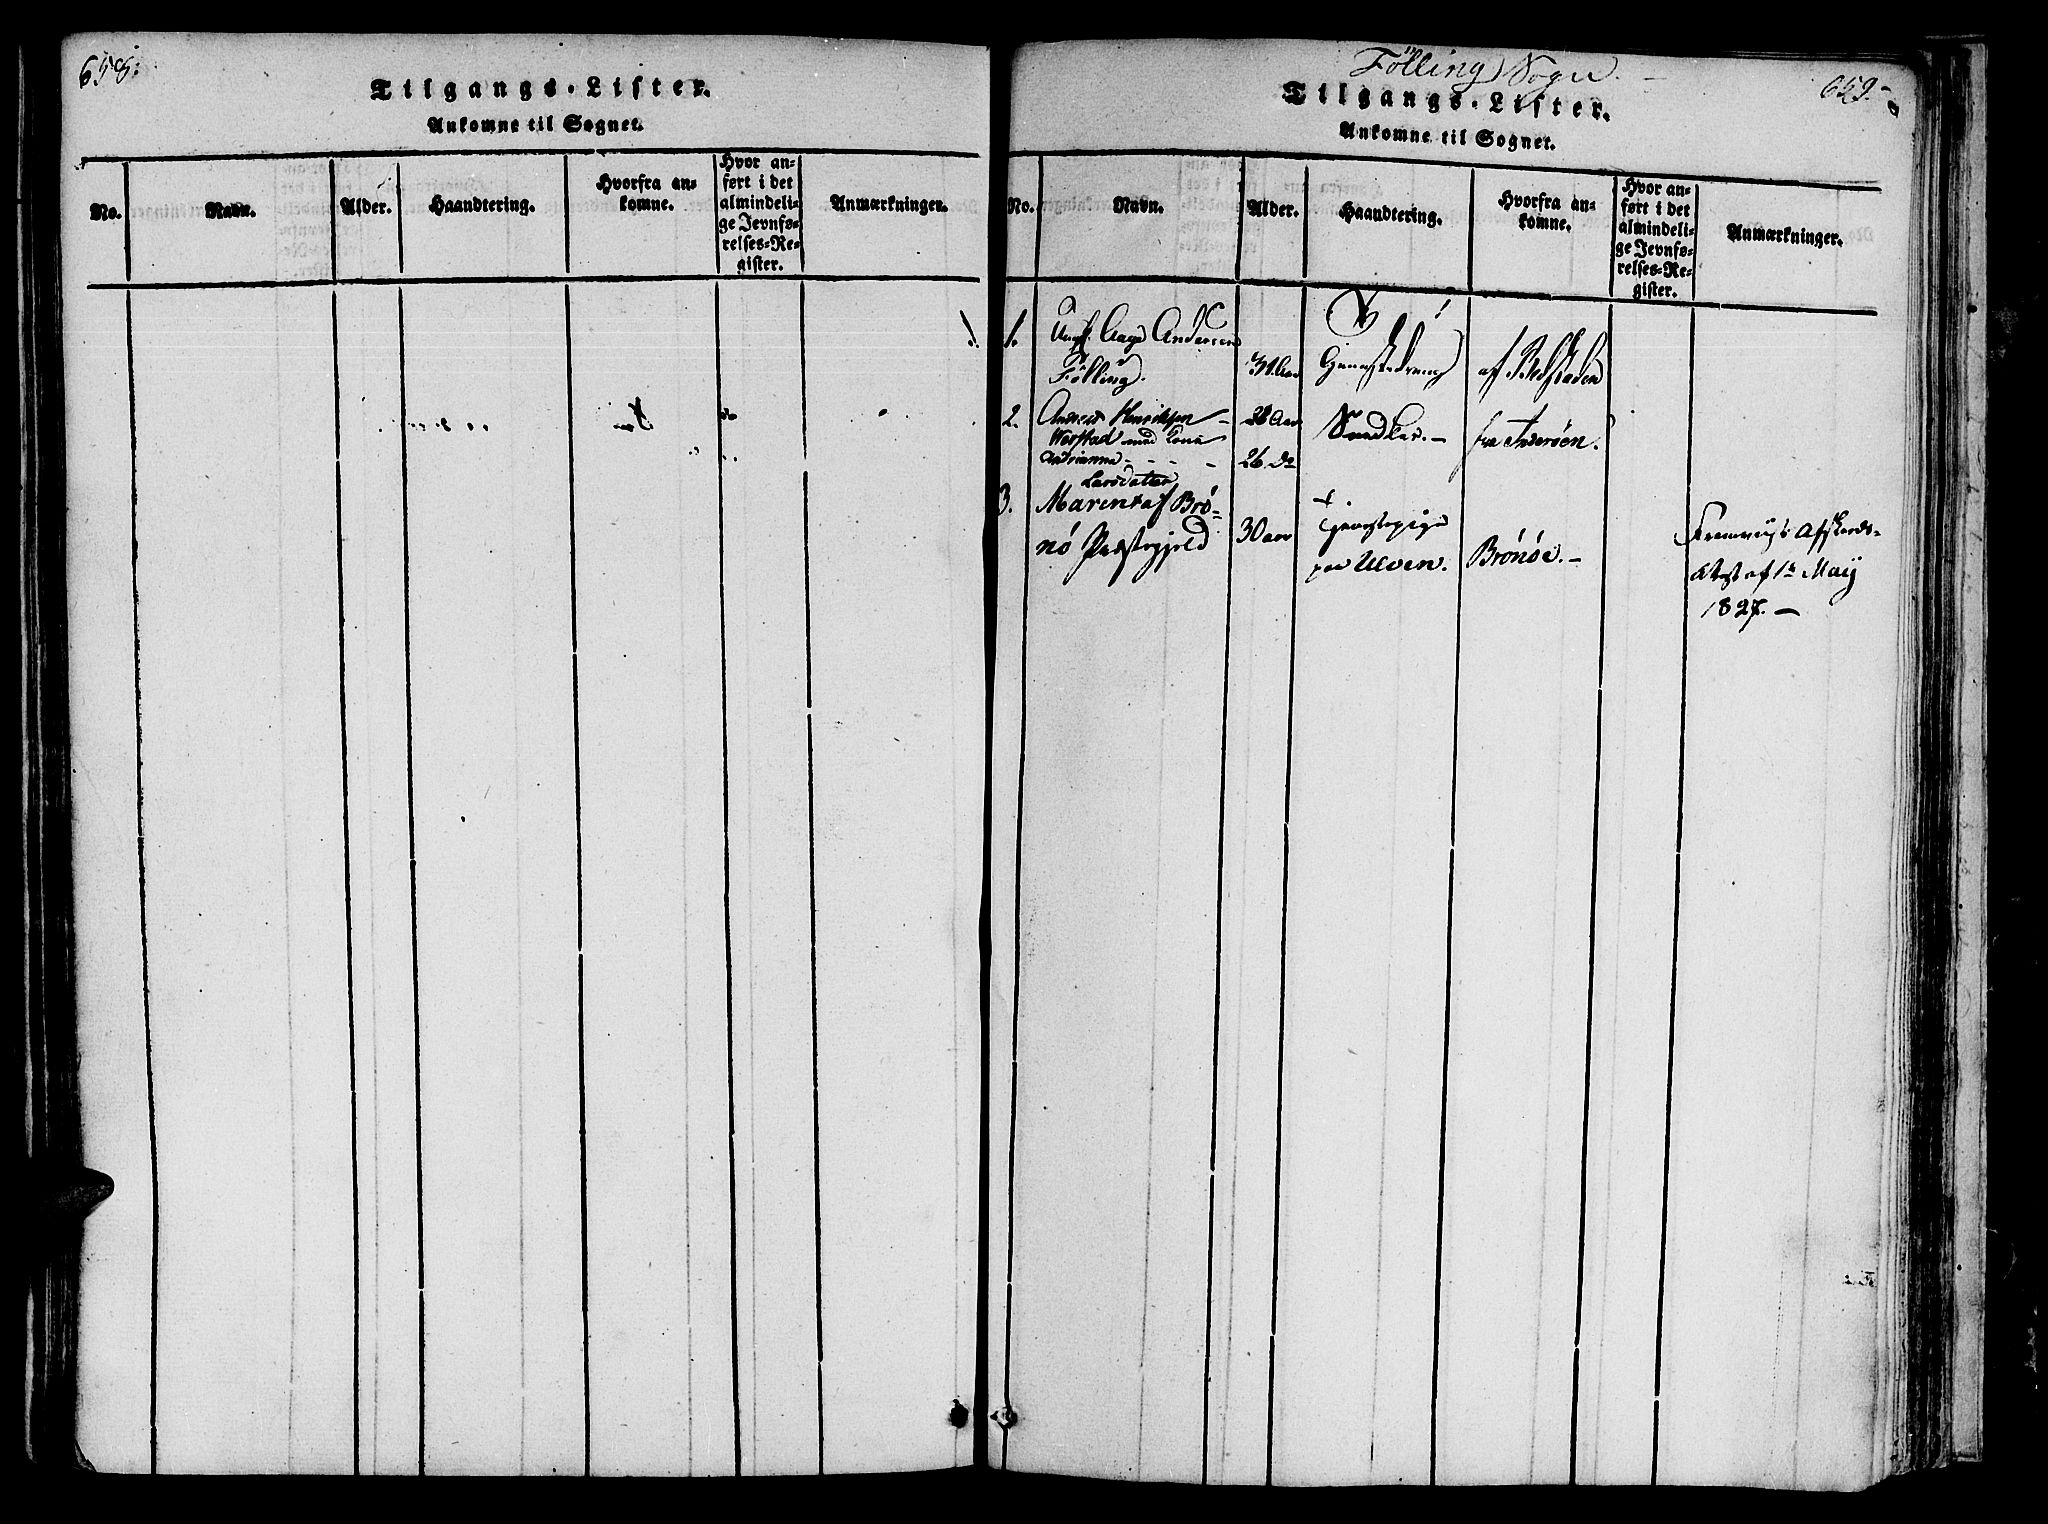 658.
Tilgangs-Lister.
Ankomne til Sognet.
No.
Navn.
Alder.
Haandtering.
Hvorfra an-
komne.
Hvor an-
ført i det
almindeli-
ge Jevnfø-
relses-Re-
gister.
Anmærkninger.
Fölling Sogn.
659.
Tilgangs-Lister.
Ankomne til Sognet.
No.
Navn.
Alder.
Haandtering.
Hvorfra an-
komne.
Hvor an-
ført i det
almindeli-
ge Jevnfø-
relses-Re-
gister.
Anmærkninger.
1.
Aage Andersen
Fölling.
31 Aar
af Bedstaden
2.
Andreas Henriksen
Werstad med Kone
Adrianna
Larsdatter
28 Aar
26 Do
Snedker.
fra Inderöen.
3.
Marent af Brö-
nö Præstegjeld
30 aar
Tjenestepige
paa Ulven.
Brönöe.
Fremviist Afskeds-
Attest af 1te Maij
1827.